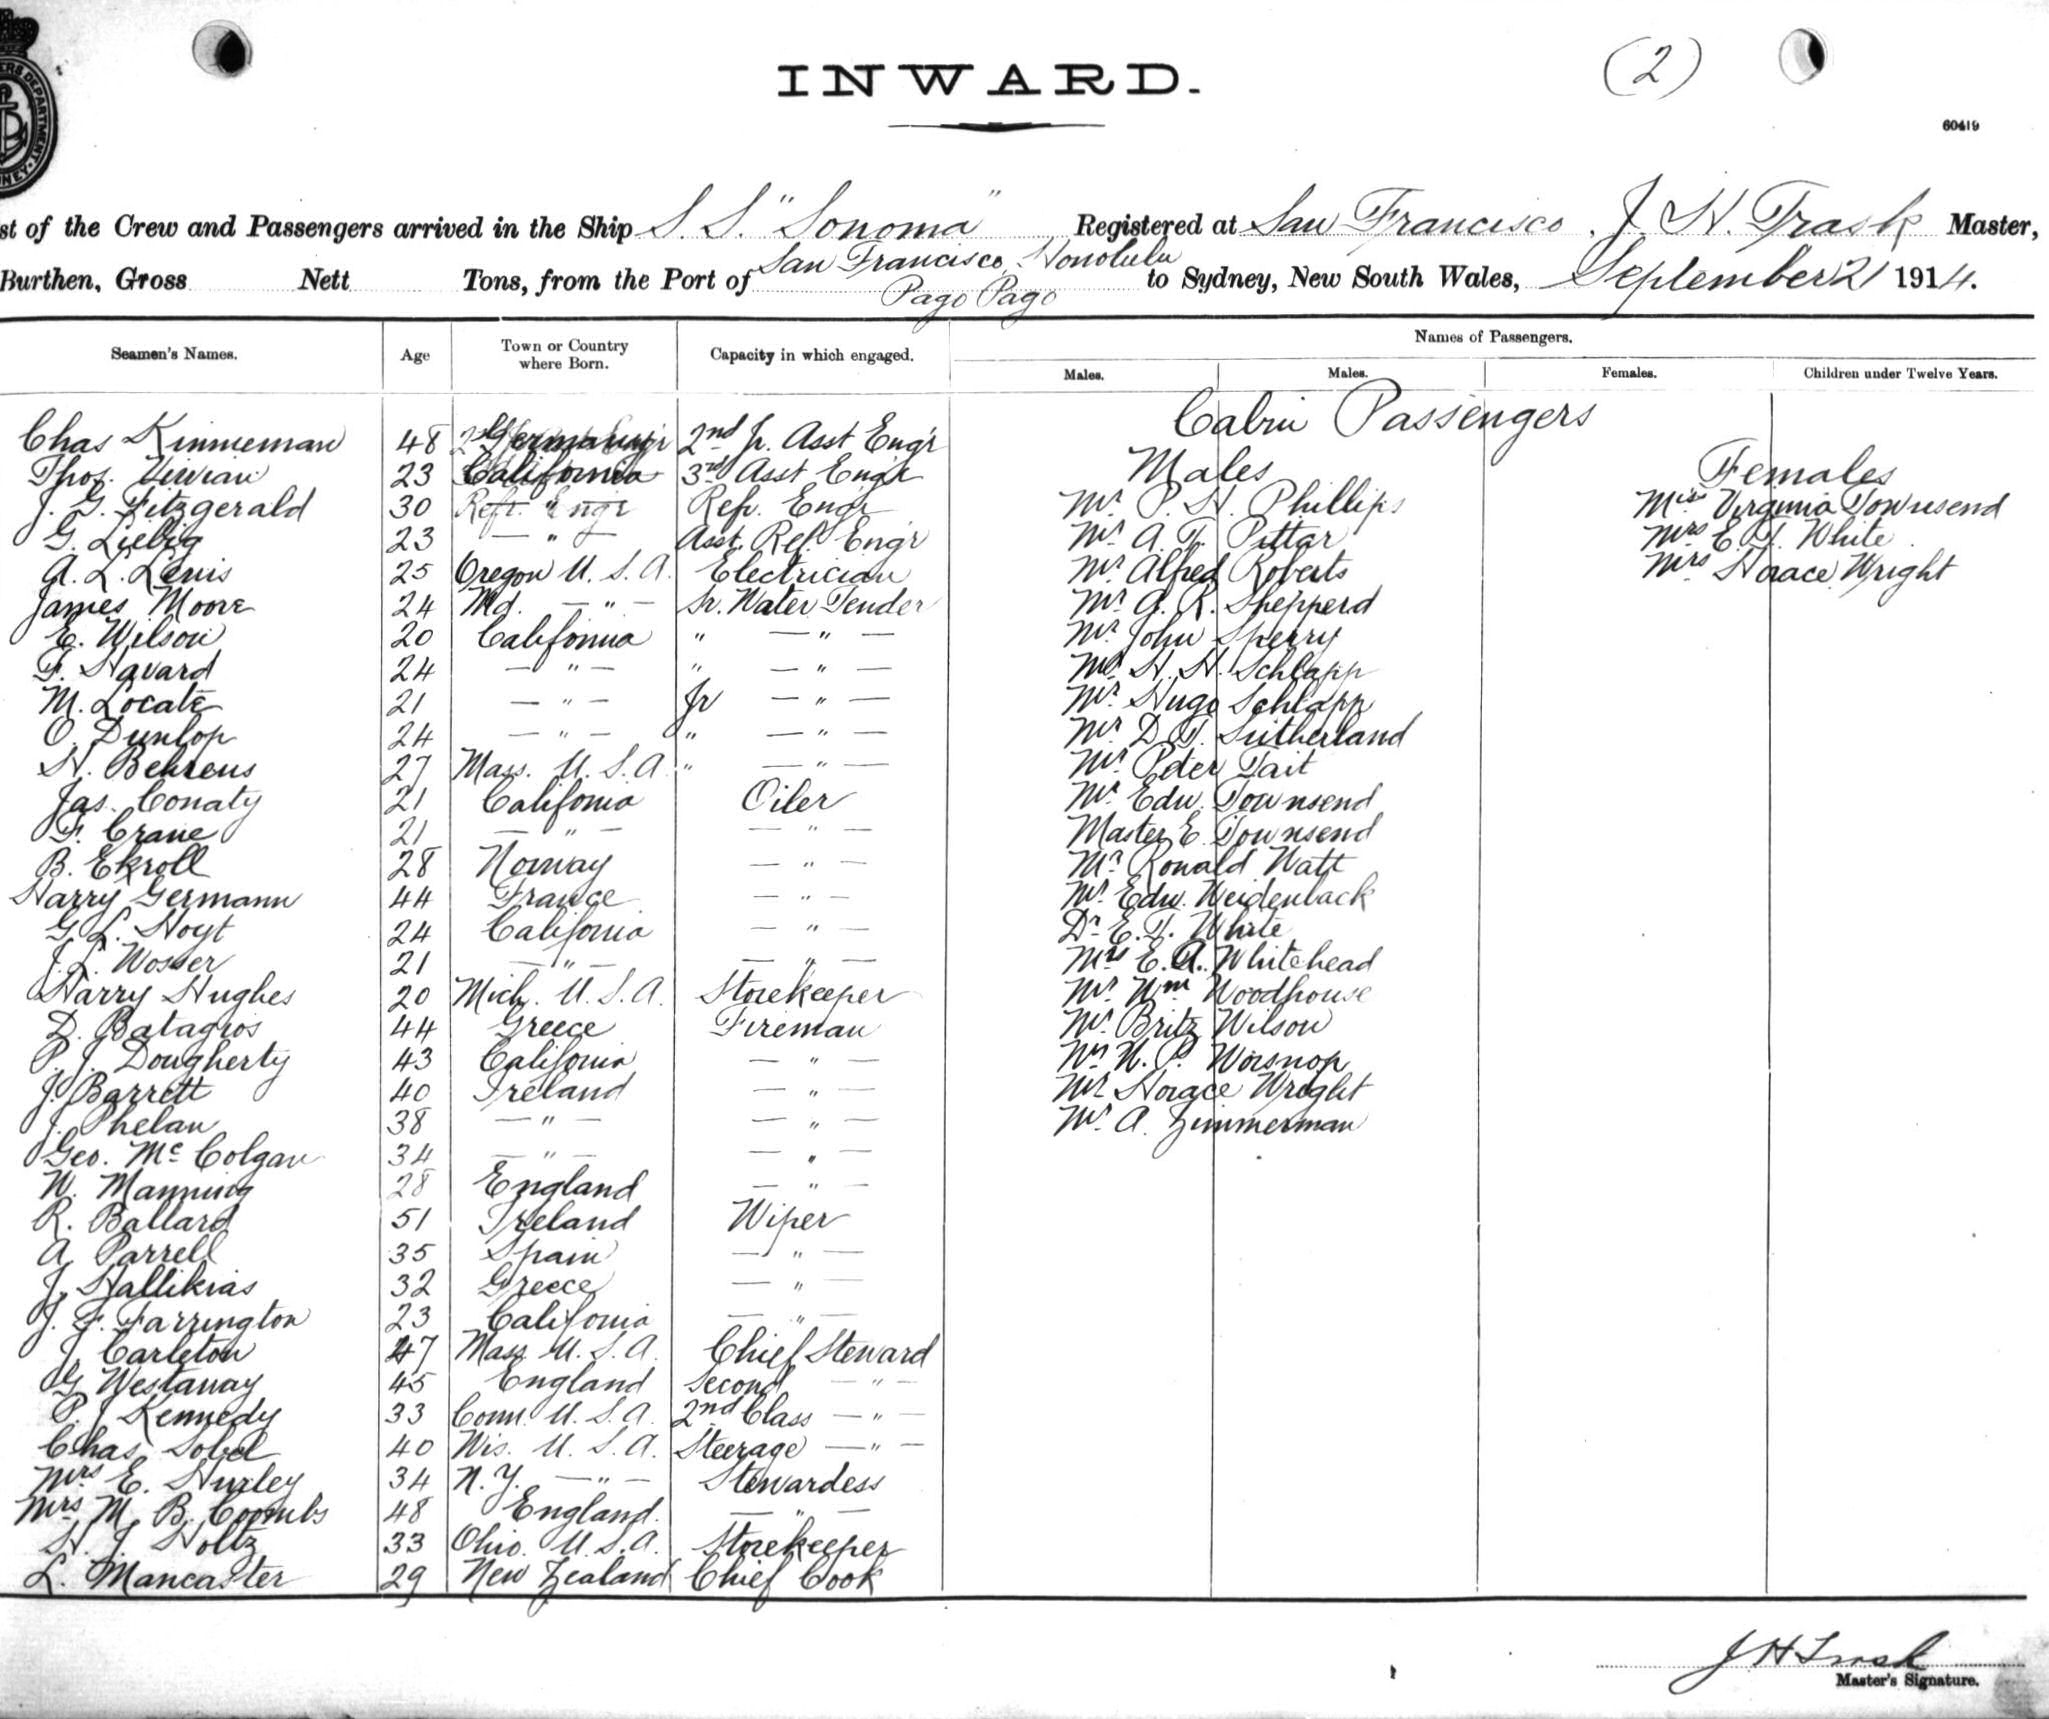 INWARD.
(2)
60419
st of the Crew and Passengers arrived in the Ship S. S. "Sonoma" Registered at San Francisco. J. H. Trask Master,
Burthen, Gross Nett Tons, from the Port of San Francisco, Honolulu Pago Pago to Sydney, New South Wales, September 21 1914.
Seamen's Names. Age Town or Country where Born. Capacity in which engaged. Names of Passengers.
Males. Males. Females. Children under Twelve Years.
Cabin Passengers
Males Females
Chas Kinneman 48 Germany 2nd Jr. Asst Eng'r
Thos. Vivian 23 California 3rd Asst Engr
J. G. Fitzgerald 30 Refr. " Engr Refr. Engr
G. Liebig 23 — " — Asst. Ref. Eng'r
A. L. Lewis 25 Oregon U. S. A. Electrician
James Moore 24 Md. — " — Sr. Water Tender
E. Wilson 20 California " — " —
F. Havard 24 — " — " — " —
M. Locate 21 — " — Jr — " —
O. Dunlop 24 — " — " — " —
H. Behrens 27 Mass. U. S. A. " — " —
Jas. Conaty 21 California Oiler
F. Crane 21 — " — — " —
B. Ekroll 28 Norway — " —
Harry Germann 44 France — " —
G. L. Hoyt 24 California — " —
J. L. Wosser 21 — " — — " —
Harry Hughes 20 Mich. U. S. A. Storekeeper
D. Batagios 44 Greece Fireman
P. J. Dougherty 43 California — " —
J. Barrett 40 Ireland — " —
J. Phelan 38 — " — — " —
Geo. Mc Colgan 34 — " — — " —
W. Manning 28 England — " —
R. Ballard 51 Ireland Wiper
A Parrell 35 Spain — " —
J. Hallikias 32 Greece — " —
J. F. Farrington 23 California — " —
J Carleton 47 Mass U. S. A. Chief Steward
G Westaway 45 England Second — " —
P. J Kennedy 33 Conn. U. S. A. 2nd Class — " —
Chas. Sobel 40 Wis. U. S. A. Steerage — " —
Mrs E. Hurley 34 N. Y. — " — Stewardess
Mrs M. B. Coombs 48 England. — " —
H. J. Holtz 33 Ohio. U. S. A. Storekeeper
L. Mancaster 29 New Zealand Chief Cook
Mr. P. H. Phillips
Mr. A. T. Pittar
Mr. Alfred Roberts
Mr. A. R. Shepperd
Mr. John Sperry
Mr. H. H. Schlapp
Mr. Hugo Schlapp
Mr. D. T. Sutherland
Mr. Peter Tait
Mr. Edw. Townsend
Master E. Townsend
Mr. Ronald Watt
Mr. Edw. Weidenback
Dr. E. T. White
Mrs E. A. Whitehead
Mr. Wm Woodhouse
Mr. Britz Wilson
Mr. N. P. Worsnop
Mr. Horace Wright
Mr. A. Zimmerman
Miss Virginia Townsend
Mrs E. T. White
Mrs Horace Wright
J H Trask
Master's Signature.